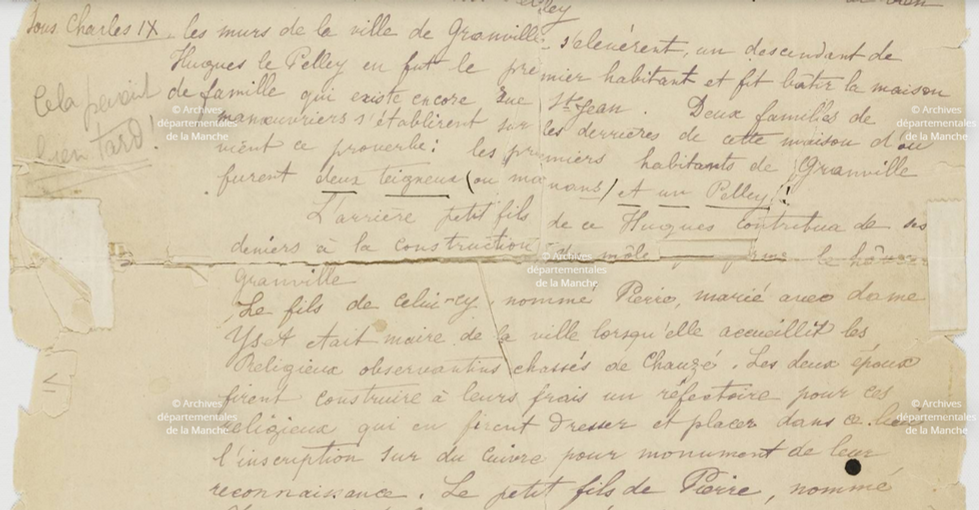 Sous Charles IX, les murs de la ville de Granville s'élevèrent, un descendant de
Hugues le Pelley en fut le premier habitant et fit bâtir la maison
de famille qui existe encore rue St Jean. Deux familles de
manœuvriers s'établirent sur les derrières de cette maison d'où
vient ce proverbe: les premiers habitants de Granville
furent deux teigneux (ou manans) et un Pelley!
Cela
bien tard!
L'arrière petit fils de ce Hugues contribua de ses
deniers à la construction du môle qui forme le hâvre
Granville
Le fils de celui-cy, nommé Pierre, marié avec dame
Yset etait maire de la ville lorsqu'elle accueillit les
Religieux observantins chassés de Chauzé. Les deux époux
firent construire à leurs frais un réfectoire pour ces
religieux qui en firent dresser et placer dans ce lieu
l'inscription sur du cuivre pour monument de leur
reconnaissance. Le petit fils de Pierre, nommé
VI
© Archives
départementales
de la Manche
© Archives
départementales
de la Manche
© Archives
départementales
de la Manche
© Archives
départementales
de la Manche
© Archives
départementales
de la Manche